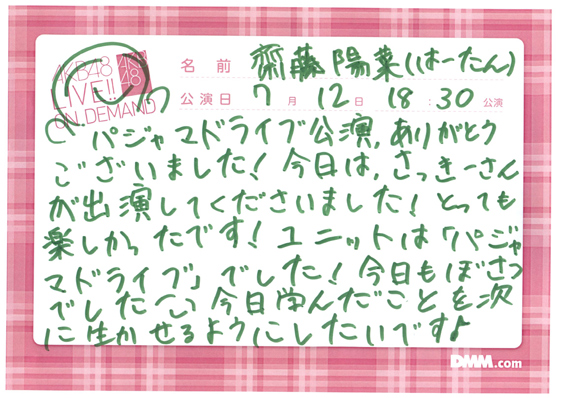 AKB48
LIVE!!
ON DEMAND
AKB
48
名前 齋藤陽菜(はーたん)
公演日 7月12日 18:30公演
パジャマドライブ公演,ありがとう
ございました!今日は,さっきーさん
が出演してくださいました!とっても
楽しかったです!ユニットは「パジャ
マドライブ」でした!今日もぼさつ
でした 今日学んだことを次
に生かせるようにしたいです♪
DMM.com